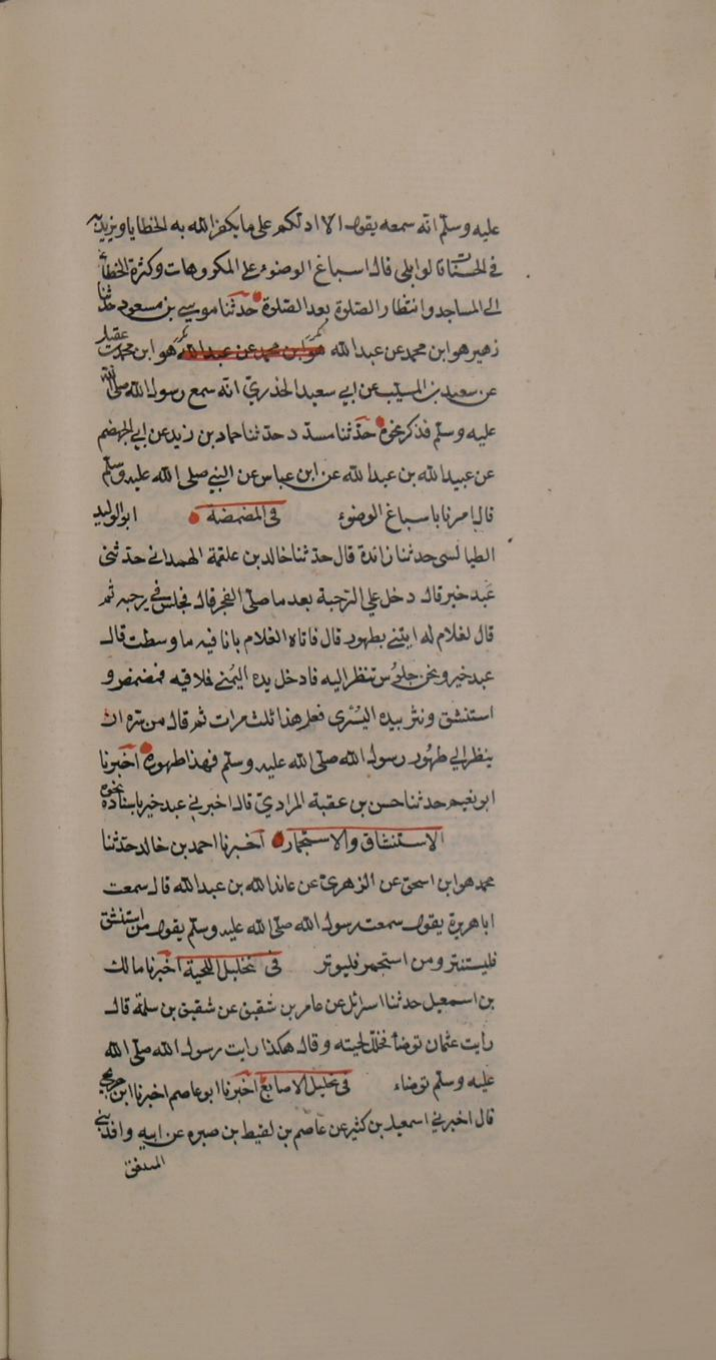 عليه وسلم انه سمعه يقول الا ادلكم على ما يكفر الله به الخطايا ويزيد به
في الحسنات قالوا بلى قال اسباغ الوضوء على المكروهات وكثرة الخطا
الى المساجد وانتظار الصلوة بعد الصلوة حدثنا موسى بن مسعود حدثنا
زهير هو ابن محمد عن عبدالله هو ابن محمد عن عبدالله هو ابن محمد بن عقيل
عن سعيد بن المسيب عن ابي سعيد الخدري انه سمع رسول الله صلى الله
عليه وسلم فذكر نحوه حدثنا مسدد حدثنا حماد بن زيد عن ابي الجهضم
عن عبيدالله بن عبدالله عن ابن عباس عن النبي صلى الله عليه وسلم
قال امرنا باسباغ الوضوء في المضمضة ابوالوليد
الطيالسى حدثنا زائدة قال حدثنا خالد بن علقمة الهمداني حدثنى
عبد خير قال دخل علي الرحبة بعد ما صلى الفجر قال فجلس في رحبه ثم
قال لغلام له ايتنى بطهور قال فاتاه الغلام بانا فيه ما وطست قال
عبد خير ونحن جلوس ننظر اليه فادخل يده اليمنى فملا فيه فمضمض و
استنشق ونثر بيده اليسرى فعل هذا ثلث مرات ثم قال من سره ان
ينظر الي طهور رسول الله صلى الله عليه وسلم فهذا طهوره اخبرنا
ابو نعيم حدثنا حسن بن عقبة المرادي قال اخبرني عبد خير باسناده نحوه
الاستنشاق والاستجمار اخبرنا احمد بن خالد حدثنا
محمد هو ابن اسحق عن الزهري عن عائذ الله بن عبدالله قال سمعت
ابا هريرة يقول سمعت رسول الله صلى الله عليه وسلم يقول من استنشق
فليستنثر ومن استجمر فليوتر في تخليل اللحية اخبرنا مالك
بن اسمعيل حدثنا اسرائل عن عامر بن شقيق عن شقيق بن سلمة قال
رايت عثمان توضأ فخلل لحيته وقال هكذا رايت رسول الله صلى الله
عليه وسلم توضاء في تخليل الاصابع اخبرنا ابو عاصم اخبرنا ابن جريج
قال اخبرني اسمعيل بن كثير عن عاصم بن لقيط بن صبره عن ابيه وافد بني
المنتفق